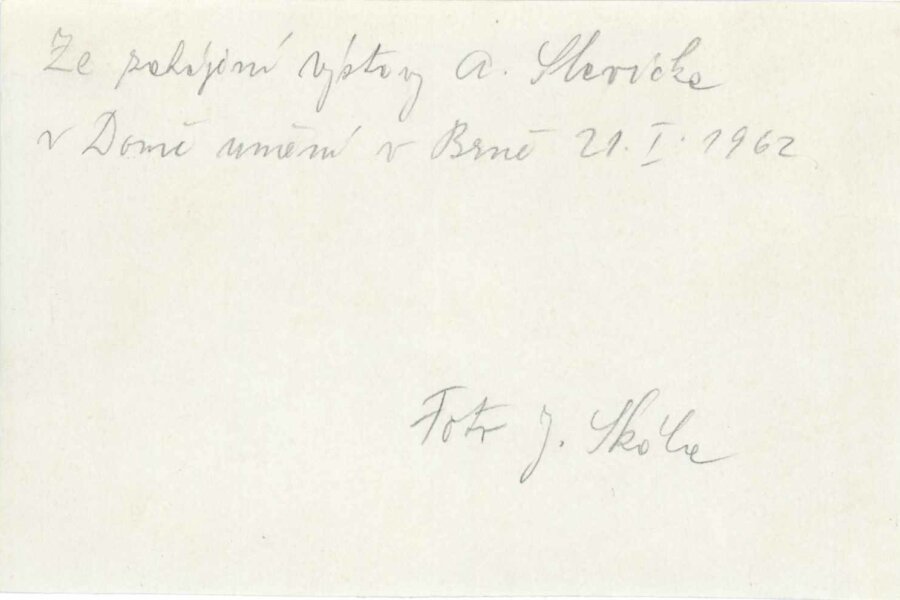 Ze zahájení výstavy A. Slavíčka
v Domě umění v Brně 21. I. 1962
Foto J. Skála